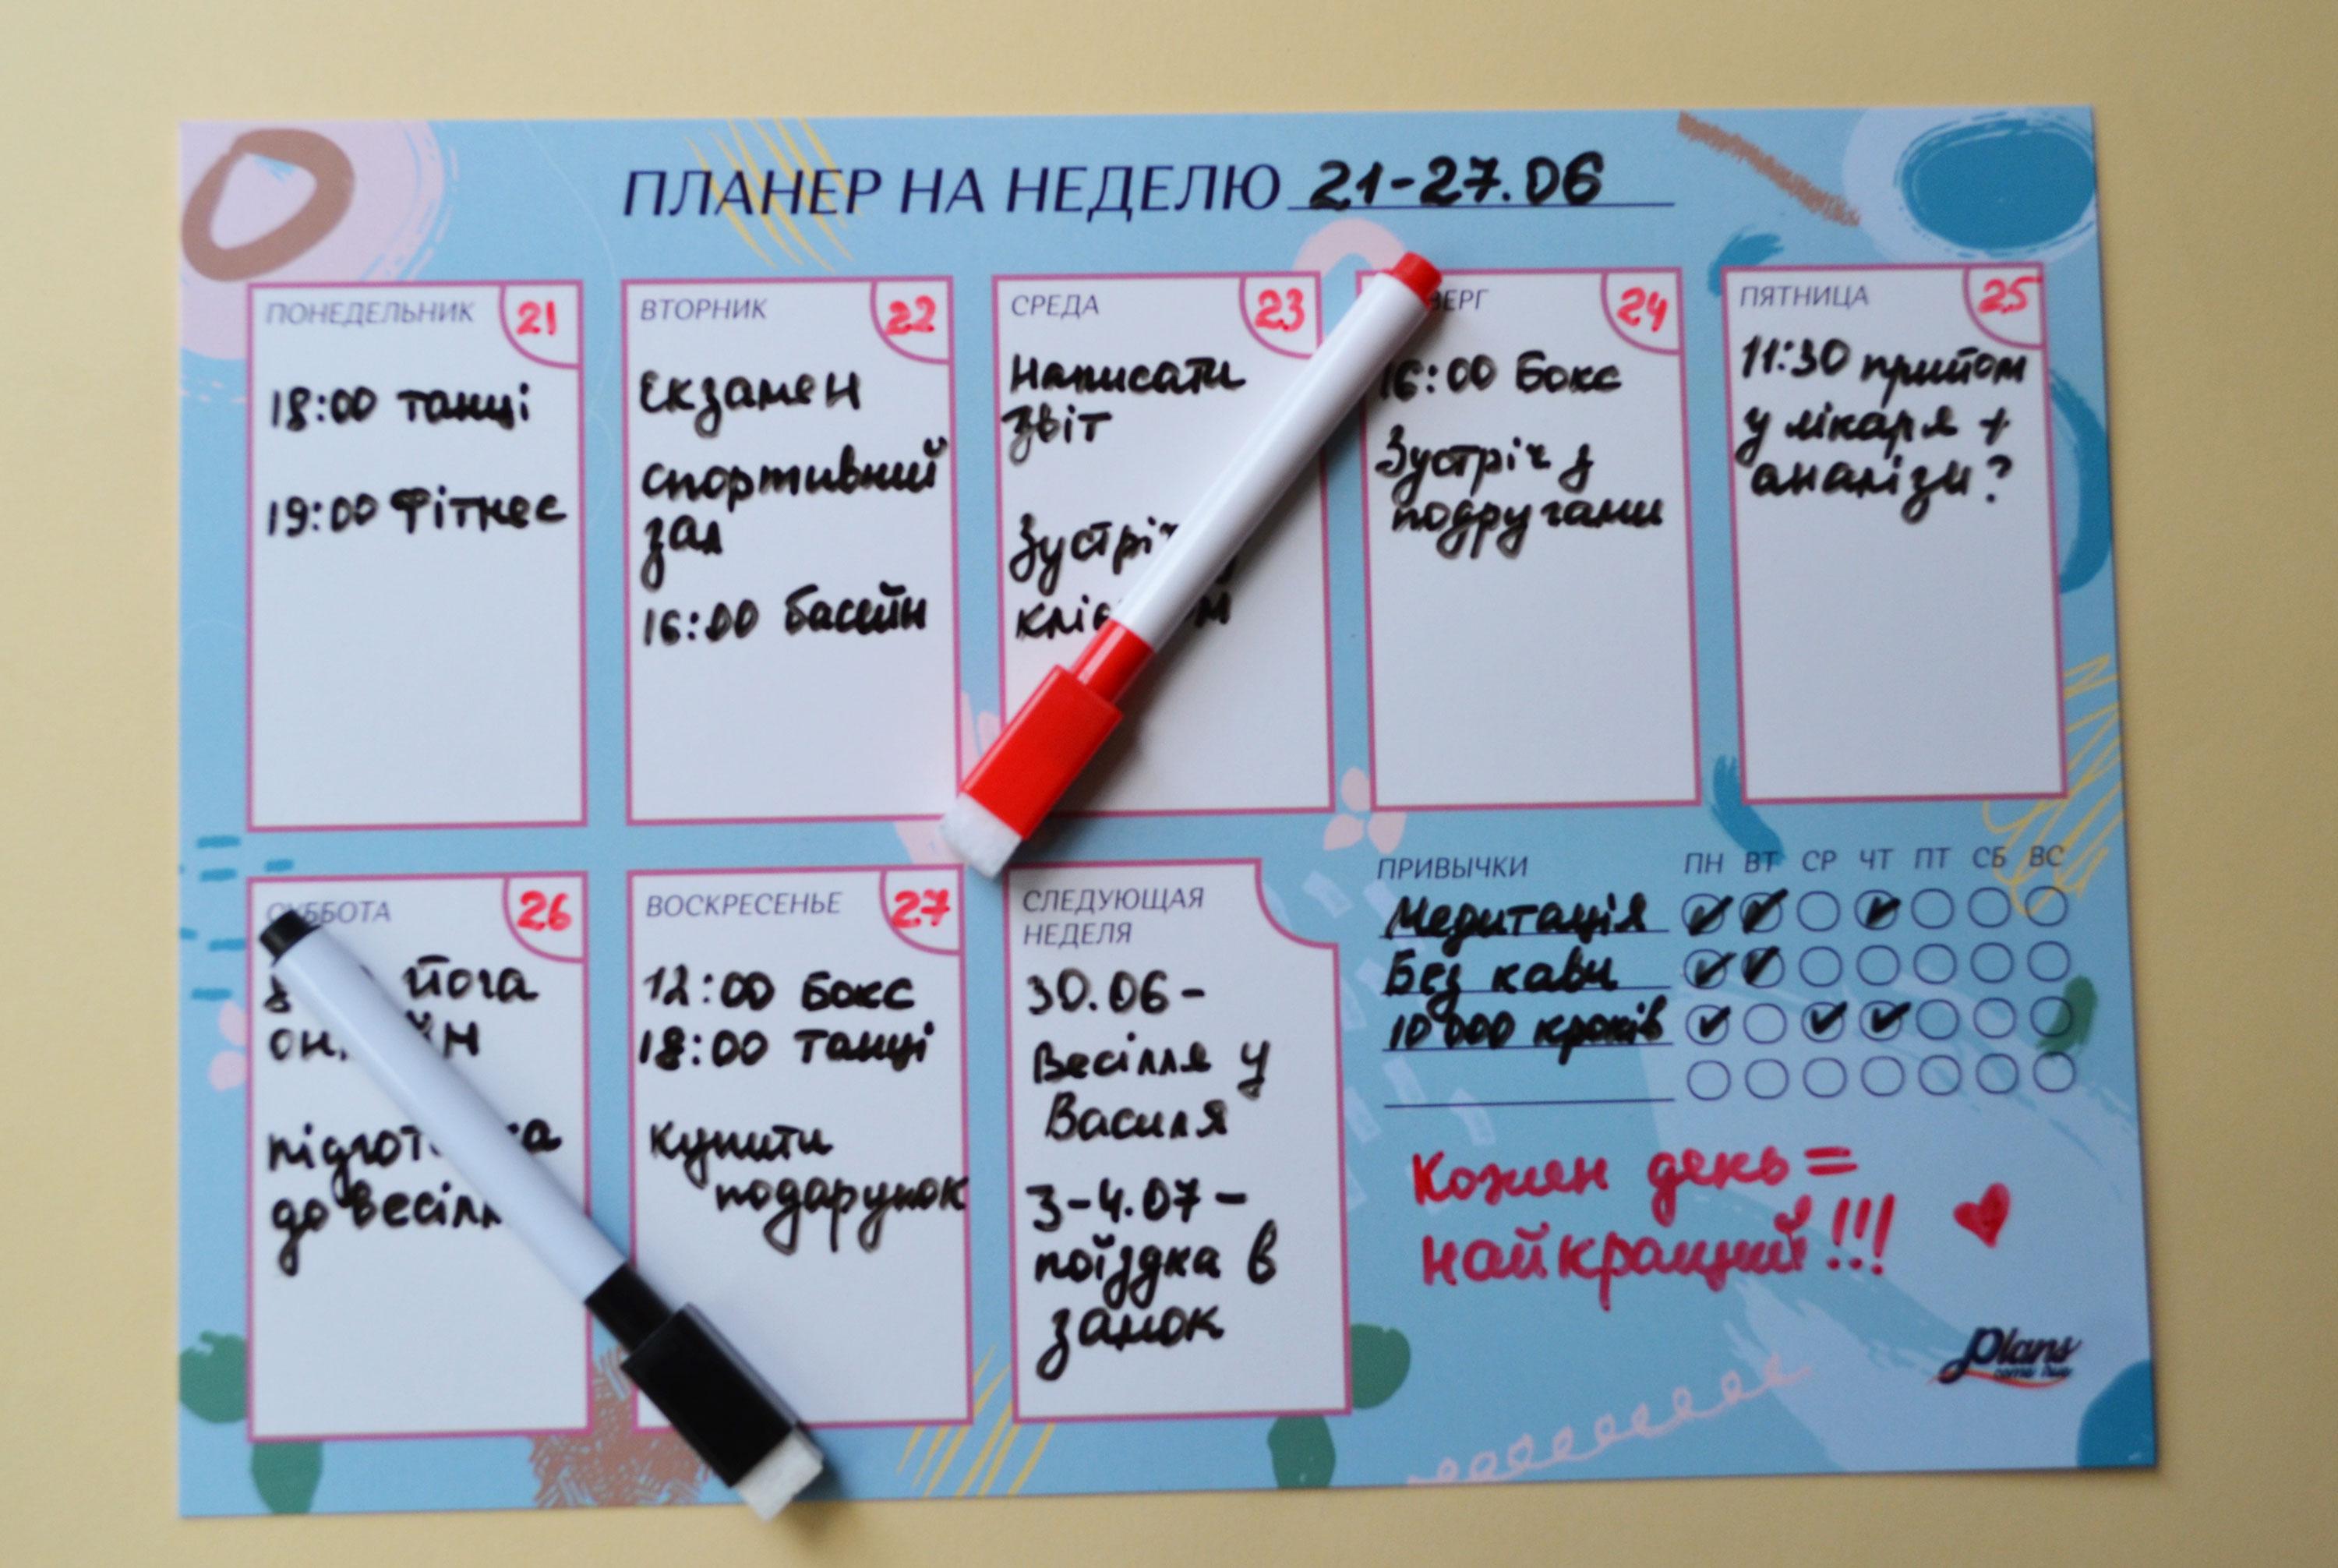 ПЛАНЕР НА НЕДЕЛЮ 21-27.06
ПОНЕДЕЛЬНИК 21
18:00 танці
19:00 Фітнес
ВТОРНИК 22
Екзамен
спортивний
зал
16:00 басейн
СРЕДА 23
Написати
звіт
24
16:00 Бокс
Зустріч з
подругами
ПЯТНИЦА 25
11:30 прийом
у лікаря +
аналізи?
СУББОТА 26
йога
до
ВОСКРЕСЕНЬЕ 27
12:00 Бокс
18:00 Танці
Купити
подарунок
СЛЕДУЮЩАЯ
НЕДЕЛЯ
30.06-
Весілля у
Василя
3-4.07-
поїздка в
замок
ПРИВЫЧКИ ПН ВТ СР ЧТ ПТ СБ ВС
Медитація
Без кави
10 000 кроків
Кожен день =
найкращий!!!
Plans
come true